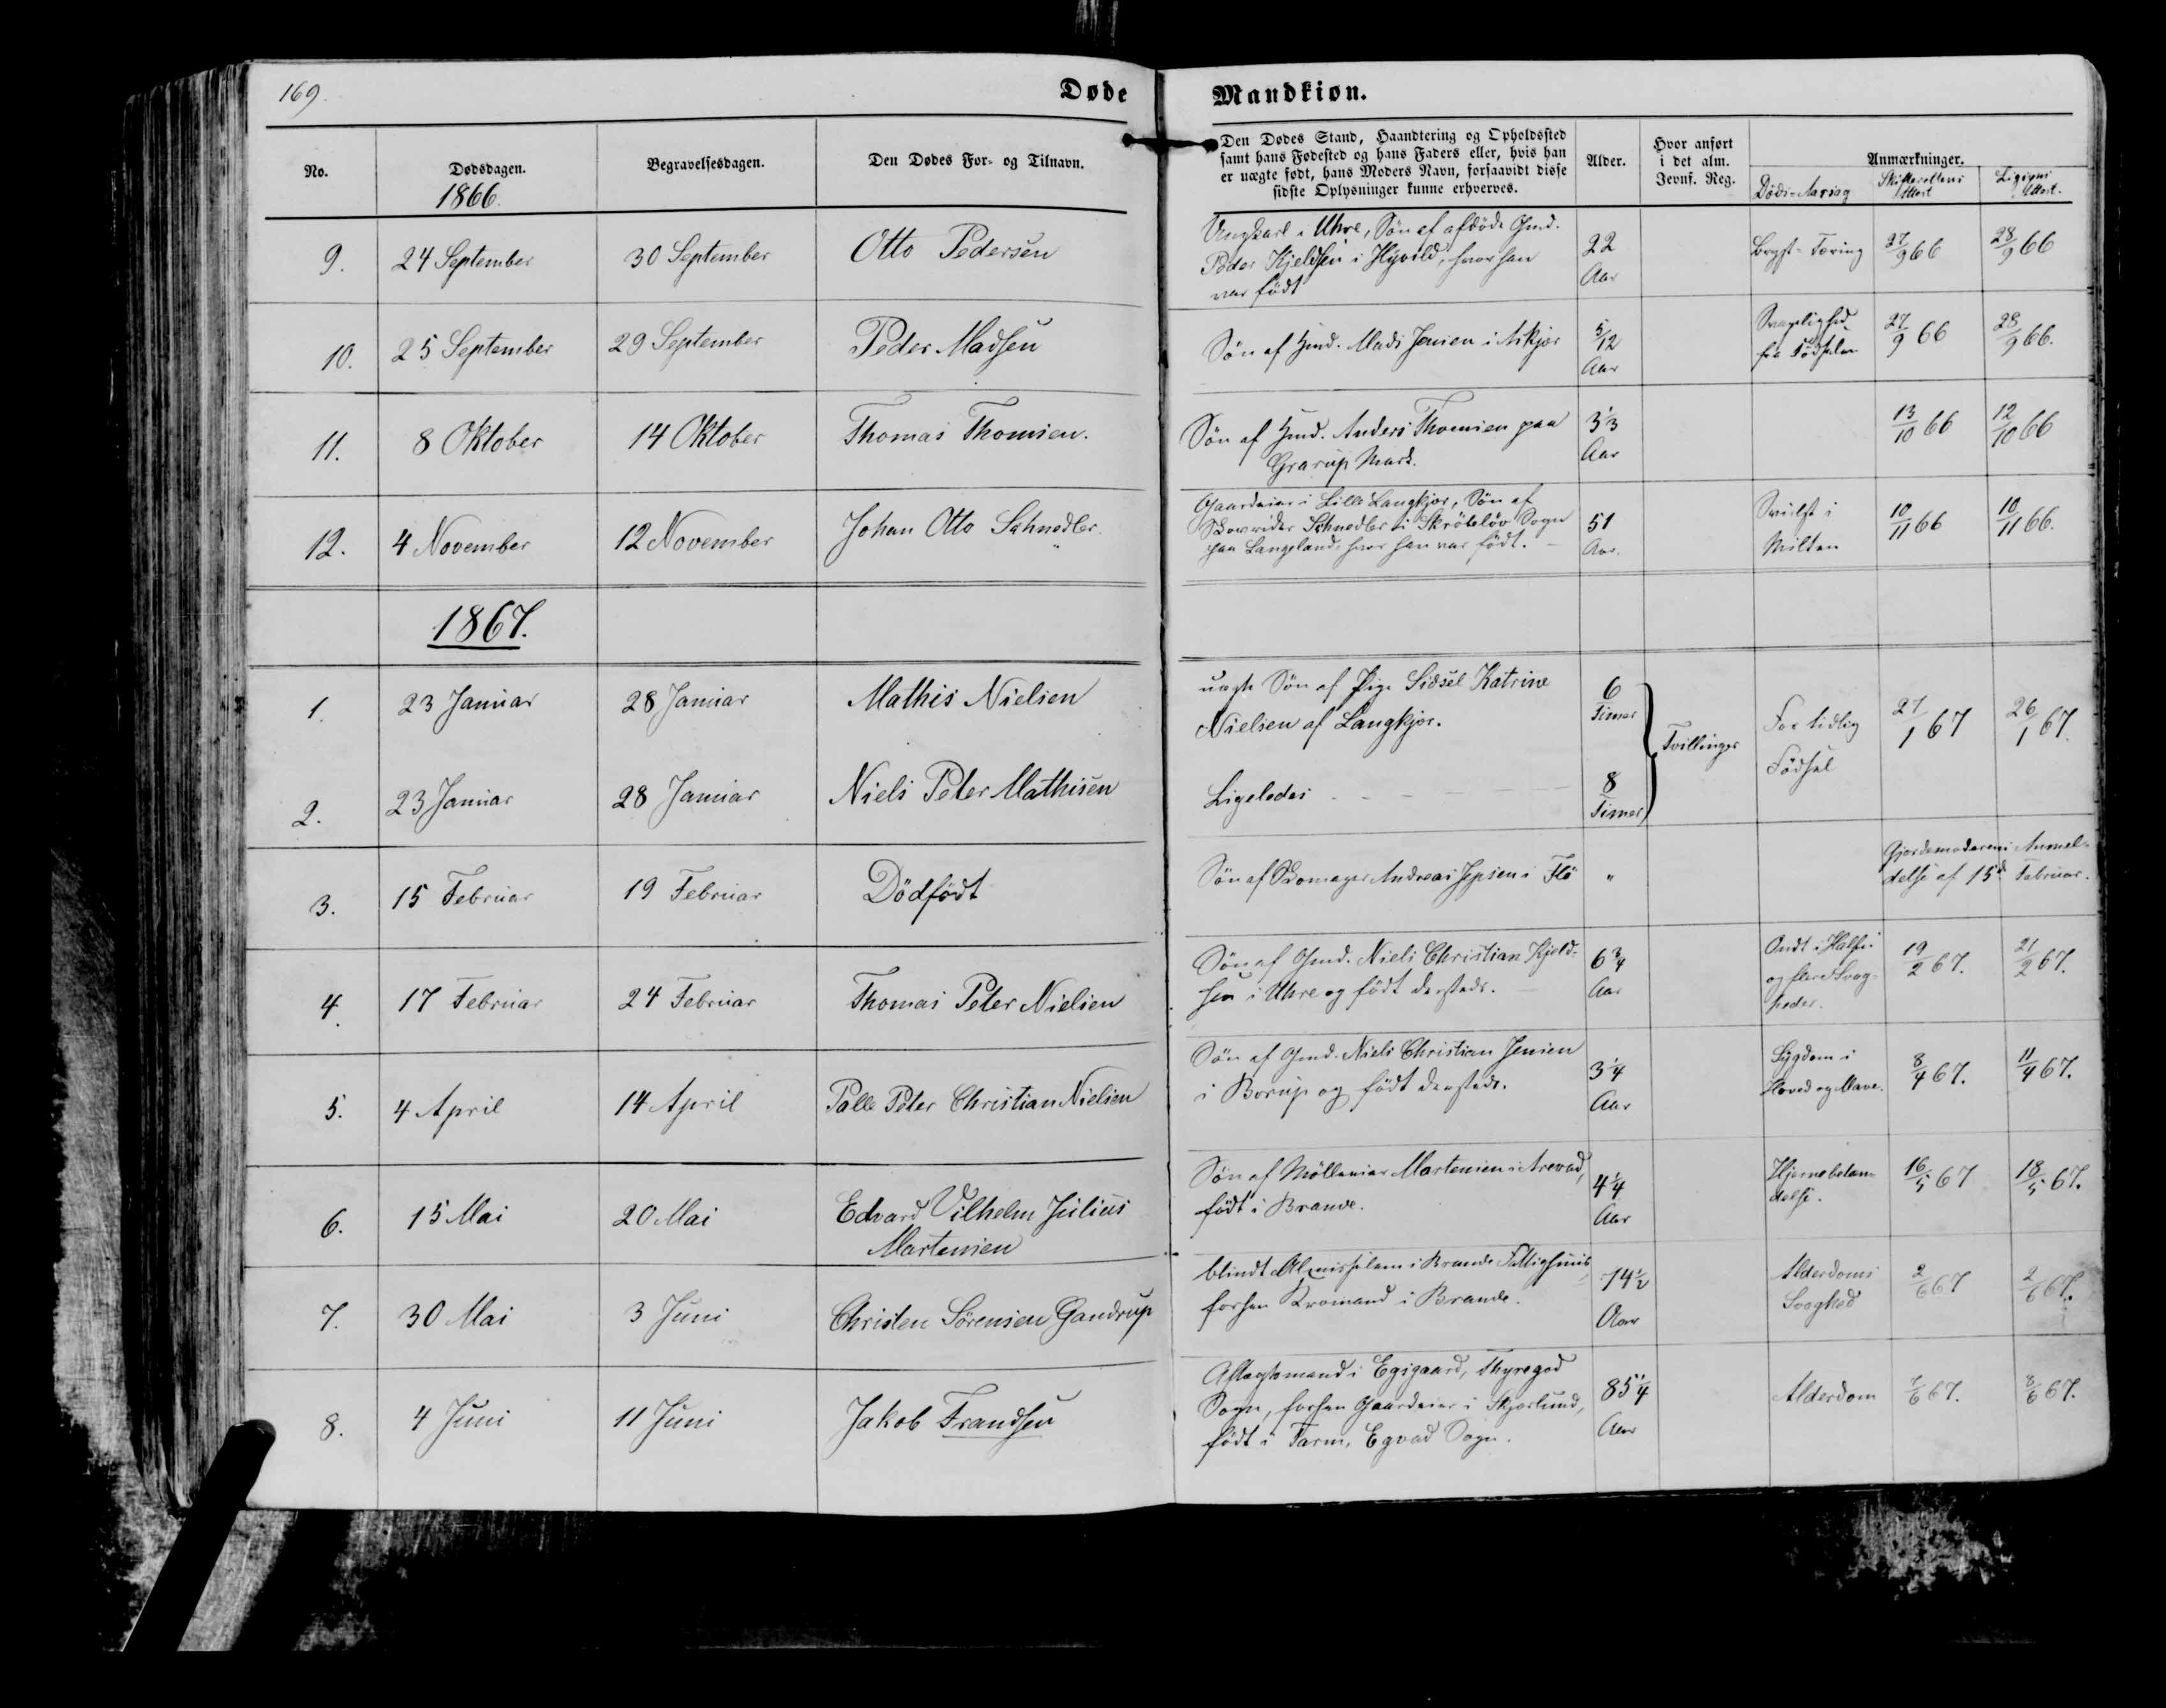 169.
Døde Mandkiøn.
No.
Dødsdagen.
1866.
Begravelsesdagen.
Den Dødes For- og Tilnavn.
Den Dødes Stand, Haandtering og Opholdssted
samt hans Fødested og hans Faders eller, hvis han
er uægte født, hans Moders Navn, forsaavidt disse
sidste Oplysninger kunne erhverves.
Alder.
Hvor anført
i det alm.
Jevnf. Reg.
Anmærkninger.
Döds-Aarsag
Skifterettens Attest
Ligsyns Attest.
9. 24 September 30 September Otto Pedersen
Ungkarl i Uhre, Søn af afdöde Gmd.
Peder Kjeldsen i Hyvild, hvor han
var födt
22
Aar
Bryst-Tæring
27/9 66 28/9 66
10. 25 September 29 September Peder Madsen
Søn af Hmd. Mads Jensen i Askjær
5/12
Aar
Svagelighed
fra Födselen
27/9 66 28/9 66.
11. 8 Oktober 14 Oktober Thomas Thomsen.
Søn af Hmd. Anders Thomsen paa
Grarup Mark.
3 1/3
Aar
13/10 66 12/10 66
12. 4 November 12 November Johan Otto Schnedler.
Gaardeier i Lille Langkjær, Søn af
Skovrider Schnedler i Skröbelöv Sogn
paa Langeland, hvor han var födt.
51
Aar.
Svulst i
Milten
10/11 66 10/11 66.
1867.
1. 23 Januar 28 Januar Mathis Nielsen
uægte Søn af Pige Sidsel Katrine
Nielsen af Langkjær.
6
Timer
2. 23 Januar 28 Januar Niels Peter Mathisen
Ligeledes
8
Timer
Tvillinger
For tidlig
Födsel
27/1 67 26/1 67.
3. 15 Februar 19 Februar Dödfödt
Søn af Skomager Andreas Jepsen i Flö
"
Gjordemoderens Anmel-
delse af 15d Februar.
4. 17 Februar 24 Februar Thomas Peter Nielsen
Søn af Gmd. Niels Christian Kjeld-
sen i Uhre og födt dersteds.
6 3/4
Aar
Ondt i Halsen
og flere Svag-
heder.
19/2 67. 21/2 67.
5. 4 April 14 April Palle Peter Christian Nielsen
Søn af Gmd. Niels Christian Jensen
i Borup og födt dersteds.
3 1/4
Aar
Sygdom i
Hoved og Mave.
8/4 67. 11/4 67.
6. 15 Mai 20 Mai Edvard Vilhelm Julius
Martensen
Søn af Mölleeier Martensen i Arevad,
födt i Brande.
4 1/4
Aar
Hjernebetæn-
delse.
16/5 67 18/5 67.
7. 30 Mai 3 Juni Christen Sörensen Gandrup
blindt Almisselem i Brande Fattighuus
forhen Kromand i Brande.
74 1/2
Aar
Alderdoms
Svaghed
2/6 67 2/6 67.
8. 4 Juni 11 Juni Jakob Frandsen
Aftægtsmand i Egsgaard, Thyregod
Sogn, forhen Gaardeier i Skjærlund,
födt i Tarm, Egvad Sogn.
85 1/4
Aar
Alderdom
7/6 67. 8/6 67.